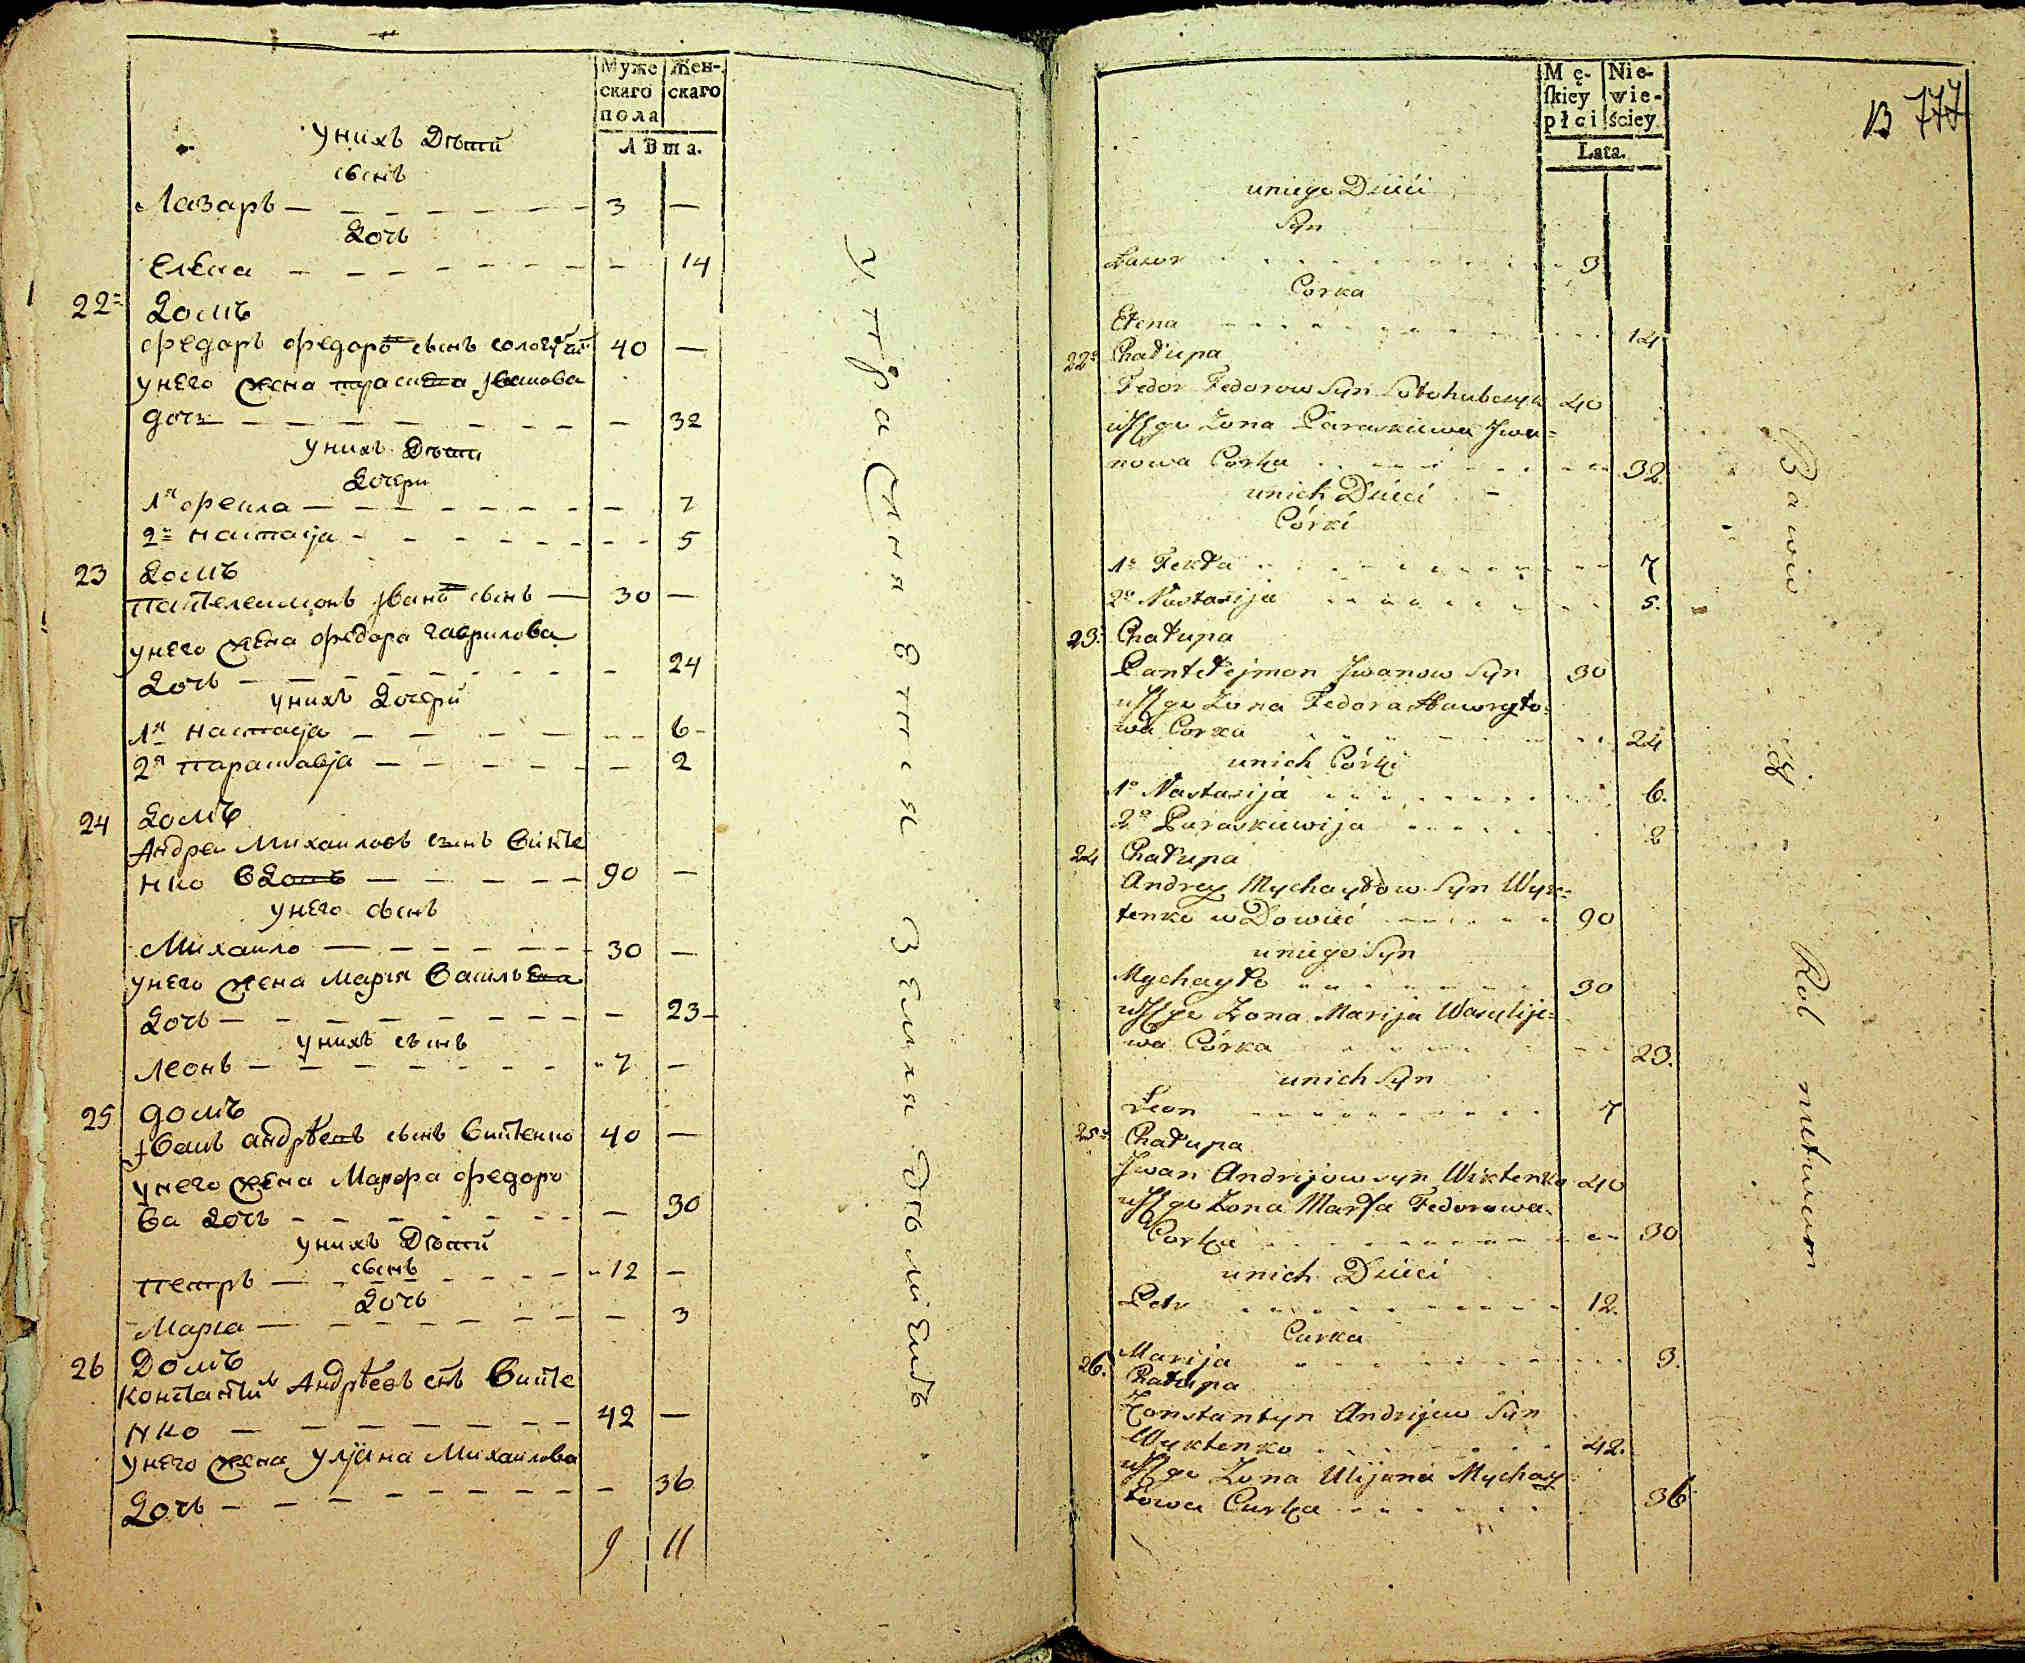 Муже
скаго
пола
Жен-
скаго
Лѣта.
унихъ Дѣти
сынъ
Лазаръ — 3 —
Дочь
Елена — 14
22 Домъ
Федоръ Федоровъ сынъ 40 —
унего жена Ивано́ва
дочь — 32
унихъ Дѣти
Дочери
1я Фекла — 7
2я Настасја — 5
23 Домъ
Пантелеимонъ Јвановъ сынъ — 30 —
унего жена Федора Гаврилова
Дочь — 24
унихъ Дочери
1я Настасја — 6
2я Парасковја — 2
24 Домъ
Андреи Михаиловъ сынъ Викте
нко — 90 —
унего сынъ
Михаило — 30 —
унего жена Мария Василева
Дочь — 23
унихъ сынъ
Леонъ — 7 —
25 Домъ
Јванъ Андрѣевъ сынъ Виктенко 40 —
унего жена Марфа Федоро
ва Дочь — 30
унихъ Дѣти
сынъ
Петръ — 12 —
Дочь
Мария — 3
26 Домъ
Константинъ Андрѣевъ снъ Викте
нко — 42 —
унего жена Улјана Михаилова
Дочь — 36
9 11
Mę-
ſkiey
płci
Nie-
wie-
ściey
Lata.
B 777
uniego Dzieci
Syn
Łazor 3
Corka
Ełena 14
22 Chałupa
Fedor Fedorow Syn 40
żona Paraskiewa Iwa=
nowa Corka 32
unich Dzieci
Córki
1a Fekła 7
2a Nastasija 5.
23. Chałupa
Pantełejmon Jwanow Syn 30
żona Fedora Hawryło=
wa Corka 24
unich Córki
1a Nastasija 6.
2a Paraskiewija 2
24 Chałupa
Andrey Mychayłow Syn Wyk=
tenko w Dowieć 90
uniego Syn
Mychayło 30
żona Marija Wasylije=
wa Córka 23.
unich Syn
Leon 7
25 Chałupa
Jwan Andrijow syn Wiktenko 40
żona Marfa Fedorowa
Corka 30
unich Dzieci
Petr 12.
Curka
Marija 3.
26. Chałupa
Konstantyn Andrijew Syn
Wyktenko 42.
żona Ulijana Mychay
łowa Curka 36